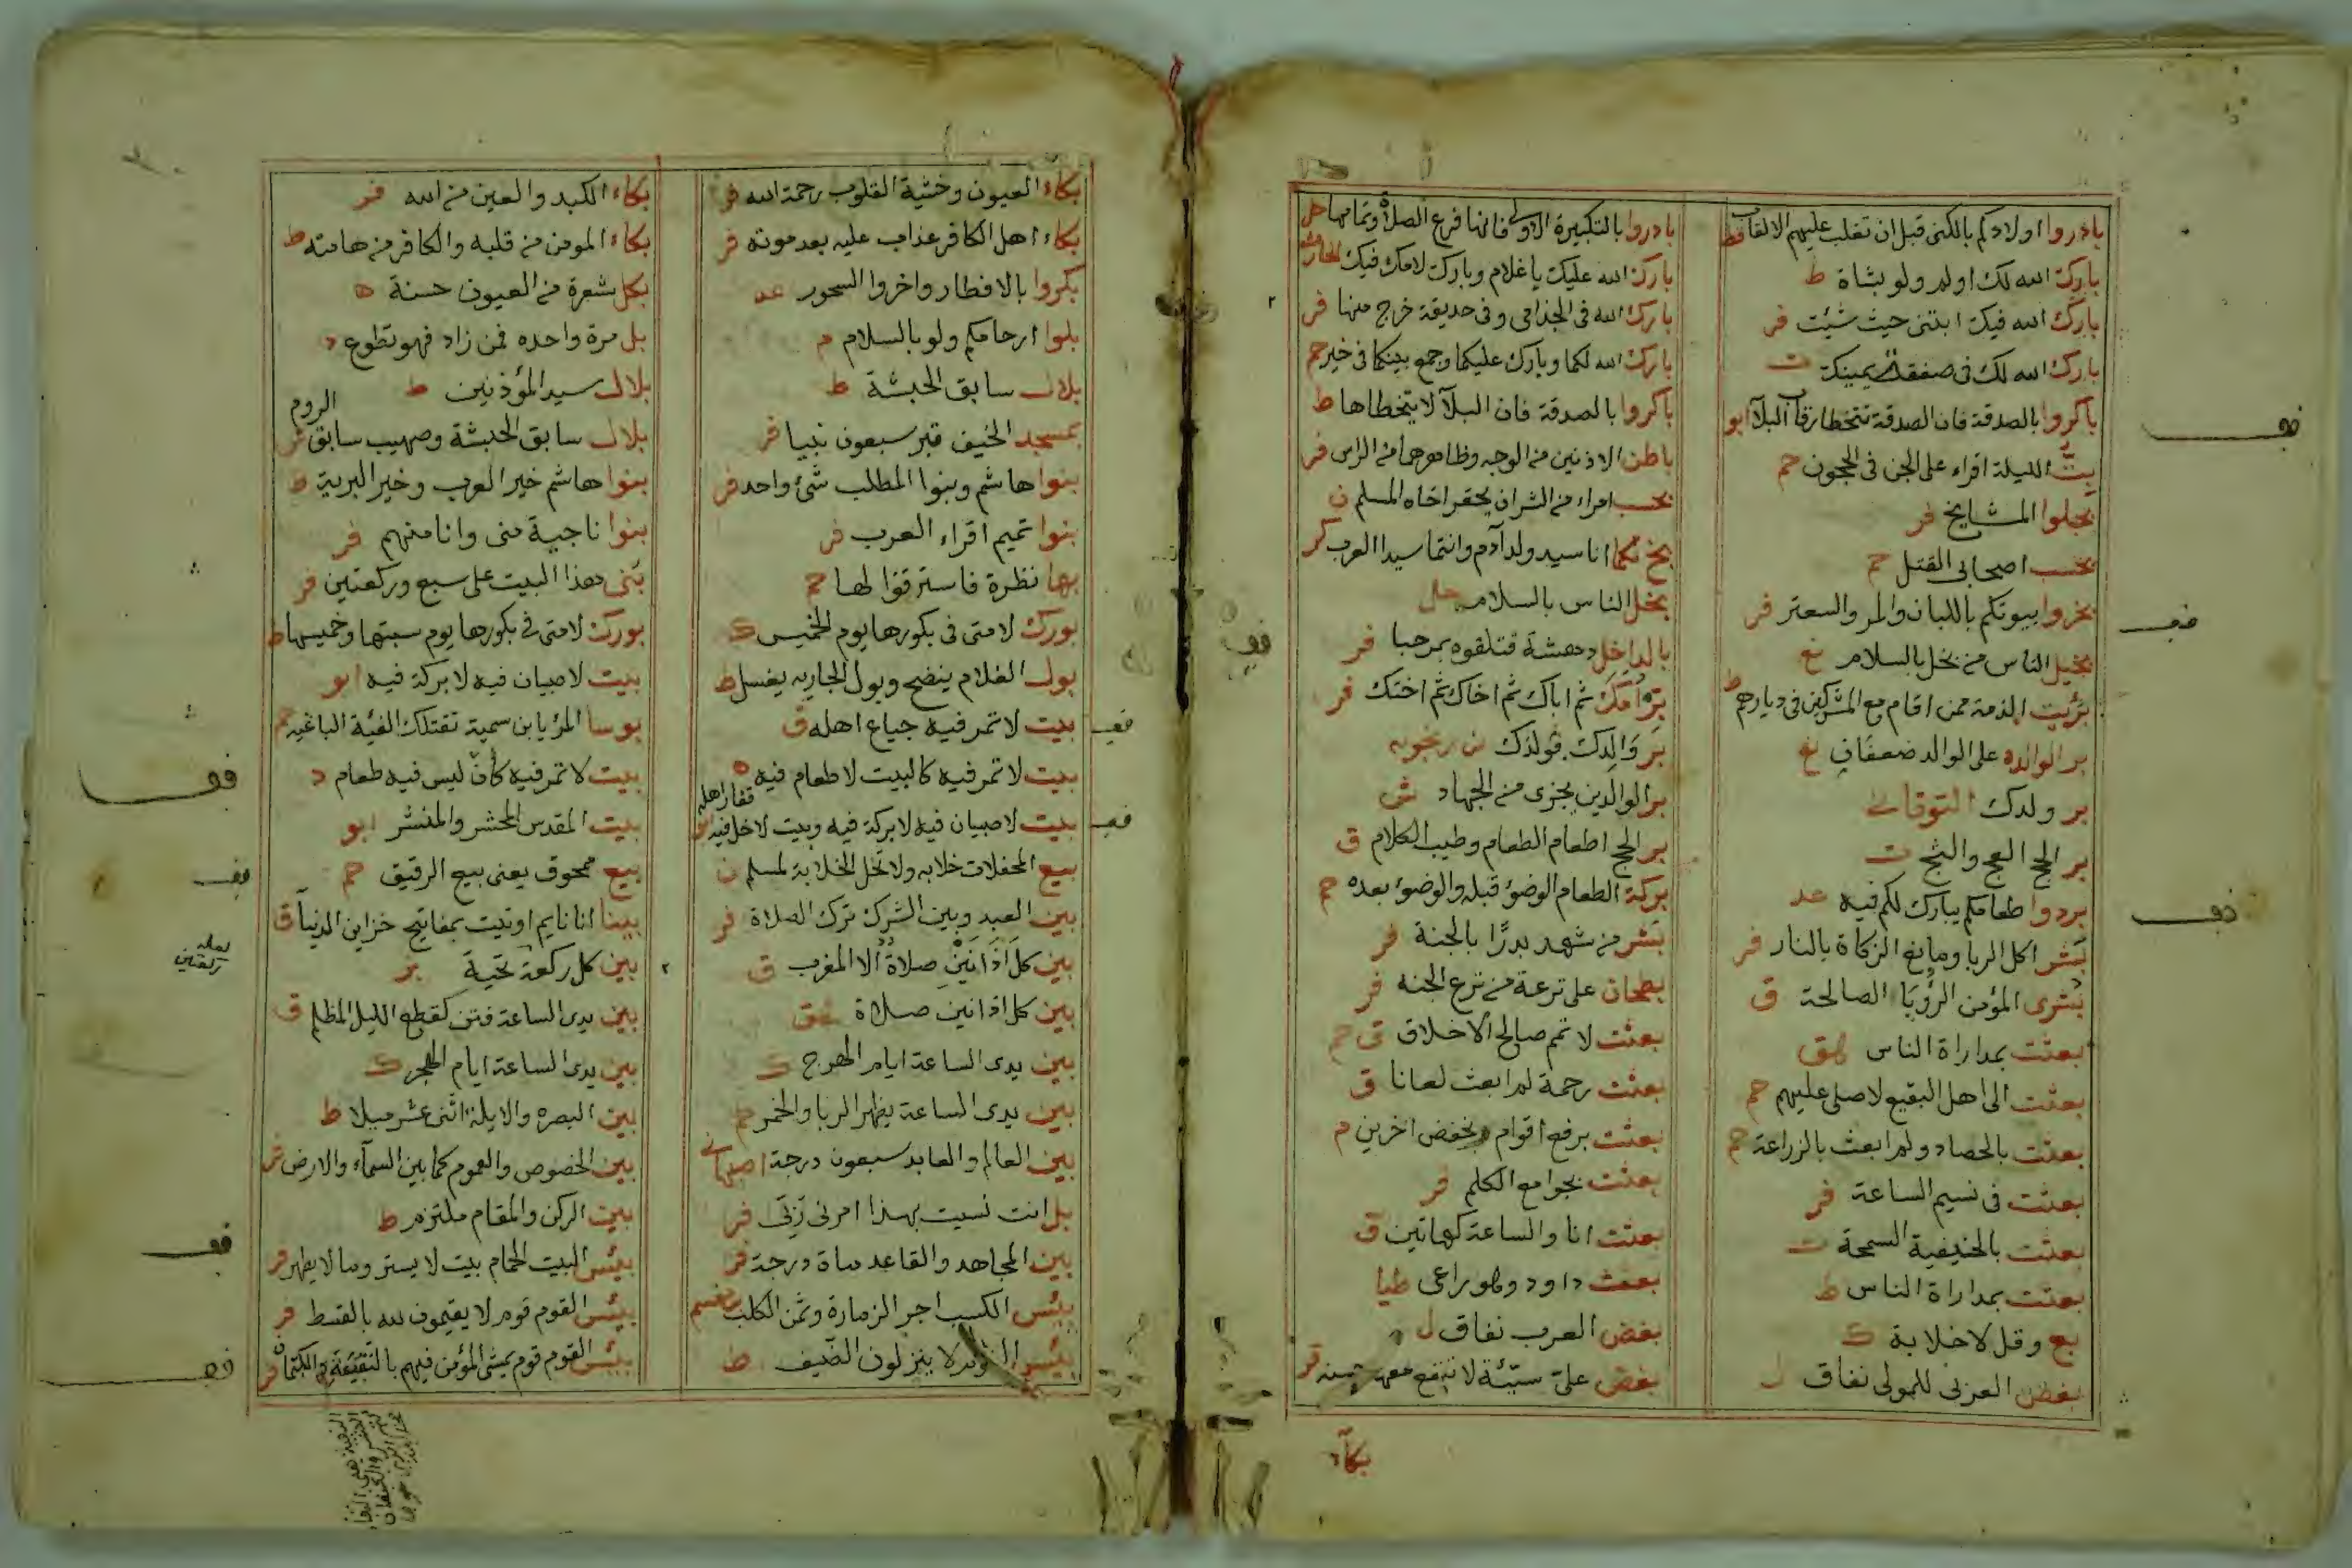 بادروا اولادكم بالكنى قبل ان تغلب عليهم الالقاب قط
بارك الله لك اولم ولو بشاة ط
بارك الله فيك ابتنى حيث شئت فر
بارك الله لك فى صفقة يمينك ت
باكروا بالصدقة فان الصدقة تتخطا رقاب البلآ ابو
بتّ الليلة اقراء على الجن فى الحجون حم
بجلوا المشايخ فر
بحسب اصحابى القتل حم
بخروا بيوتكم باللبان والمر والسعتر فر
بخيل الناس من بخل بالسلام غ
برئيت الذمة ممن اقام مع المشركين فى ديارهم ط
بر الوالده على الوالد ضعفان غ
بر ولدك التوقانى
بر الحج العج والثج ت
بردوا طعامكم يبارك لكم فيه عد
بشر اكل الربا ومانع الزكاة بالنار فر
بشرى المؤمن الرؤيا الصالحة ق
بعثت بمداراة الناس هق
بعثت الى اهل البقيع لاصلى عليهم حم
بعثت بالحصاد ولم ابعث بالزراعة حم
بعثت فى نسيم الساعة فر
بعثت بالحنيفية السمحة ت
بعثت بمداراة الناس ط
بع وقل لاخلابة ك
بغض العربى للمولى نفاق ل
بادروا بالتكبيرة الاولى فانها فرع الصلاة وتمامها حل
بارك الله عليك ياغلام وبارك لامك فيك
بارك الله فى الجذامى وفى حديقة خرج منها فر
بارك الله لكما وبارك عليكما وجمع بينكما فى خير حم
باكروا بالصدقة فان البلآ لا يتخطاها ط
باطن الاذنين من الوجه وظاهرهما من الراس فر
بحسب امراء من الشر ان يحقر اخاه المسلم ن
بخ لكما انا سيد ولد آدم وانتما سيدا العرب كر
بخل الناس بالسلام حل
بالداخل دهشة فتلقوه بمرحبا فر
برّ امك ثم اباك ثم اخاك ثم اختك فر
بر والدك فولدك
بر الوالدين يجزى من الجهاد ش
بر الحج اطعام الطعام وطيب الكلام ق
بركة الطعام الوضؤ قبله والوضؤ بعده حم
بشر من شهد بدرًا بالجنة فر
بطحان على ترعة من ترع الجنه فر
بعثت لاتمم صالح الاخلاق ق حم
بعثت رحمة لم ابعث لعانا ق
بعثت برفع اقوام وبخفض اخرين م
بعثت بجوامع الكلم فر
بعثت انا والساعة كهاتين ق
بعث داود وهو راعى طيا
بغض العرب نفاق ل
بغض علىّ سيّئة لا تنفع معها حسنه فر
بكآء
بكاء العيون وخشية القلوب رحمة الله فر
بكاء اهل الكافر عذاب عليه بعد موته فر
بكروا بالافطار واخروا السحور عد
بلوا ارحامكم ولو بالسلام م
بلال سابق الحبشة ط
بمسجد الخيف قبر سبعون نبيا فر
بنوا هاشم وبنوا المطلب شئ واحد فر
بنوا تميم اقراء العرب فر
بها نظرة فاسترقوا لها خ
بورك لامتى فى بكورها يوم الخميس ك
بول الغلام ينضح وبول الجاريه يغسل ط
بيت لا تمر فيه جياع اهله ق
بيت لا تمر فيه كالبيت لا طعام فيه ه
بيت لاصبيان فيه لابركة فيه وبيت لا خل فيه قفار اهله ابو
بيع المحفلات خلابه ولا تحل الخلابة لمسلم ن
بين العبد وبين الشرك ترك الصلاة فر
بين كل اذانين صلاة الا المغرب ق
بين كل اذانين صلاة
بين يدى الساعة ايام الهرج ك
بين يدى الساعة يظهر الربا والخمر
بين العالم والعابد سبعون درجة اصبهانى
بل انت نسيت بهذا امرنى ربّى فر
بين المجاهد والقاعد ماة درجة فر
بئس الكسب اجر الزمارة وثمن الكلب
بئس القوم لا ينزلون الضيف ط
بكاء الكبد والعين من الله فر
بكاء المومن من قلبه والكافر من هامته ط
بكل شعرة من العيون حسنة ه
بل مرة واحده فمن زاد فهو تطوع د
بلال سيد المؤذنين ط
بلال سابق الحبشة وصهيب سابق الروم ش
بنوا هاشم خير العرب وخير البرية ط
بنوا ناجية منى وانا منهم فر
بنى هذا البيت على سبع وركعتين فر
بورك لامتى فى بكورها يوم سبتها وخميسها ط
بيت لاصبيان فيه لا بركة فيه ابو
بوسا المر يابن سمية تقتلك الفية الباغيه حم
بيت لا تمر فيه كان ليس فيه طعام د
بيت المقدس المحشر والمنشر ابو
بيع ممحوق يعنى بيع الرقيق حم
بينا انا نايم اوتيت بمفاتيح خزاين الدنيآ ق
بين كل ركعة تحية بز
بين يدى الساعة فتن كقطع الليل المظلم ق
بين يدى الساعة ايام الهجر ك
بين البصره والايلة اثنى عشر ميلا ط
بين الخصوص والعموم كما بين السمآء والارض
بين الركن والمقام ملتزم ط
بيئس البيت الحمام بيت لا يستر وما لا يطهر فر
بيئس القوم قوم لا يقيمون لله بالقسط فر
بيئس القوم قوم يمشى المؤمن فيهم بالتقية والكتمان فر